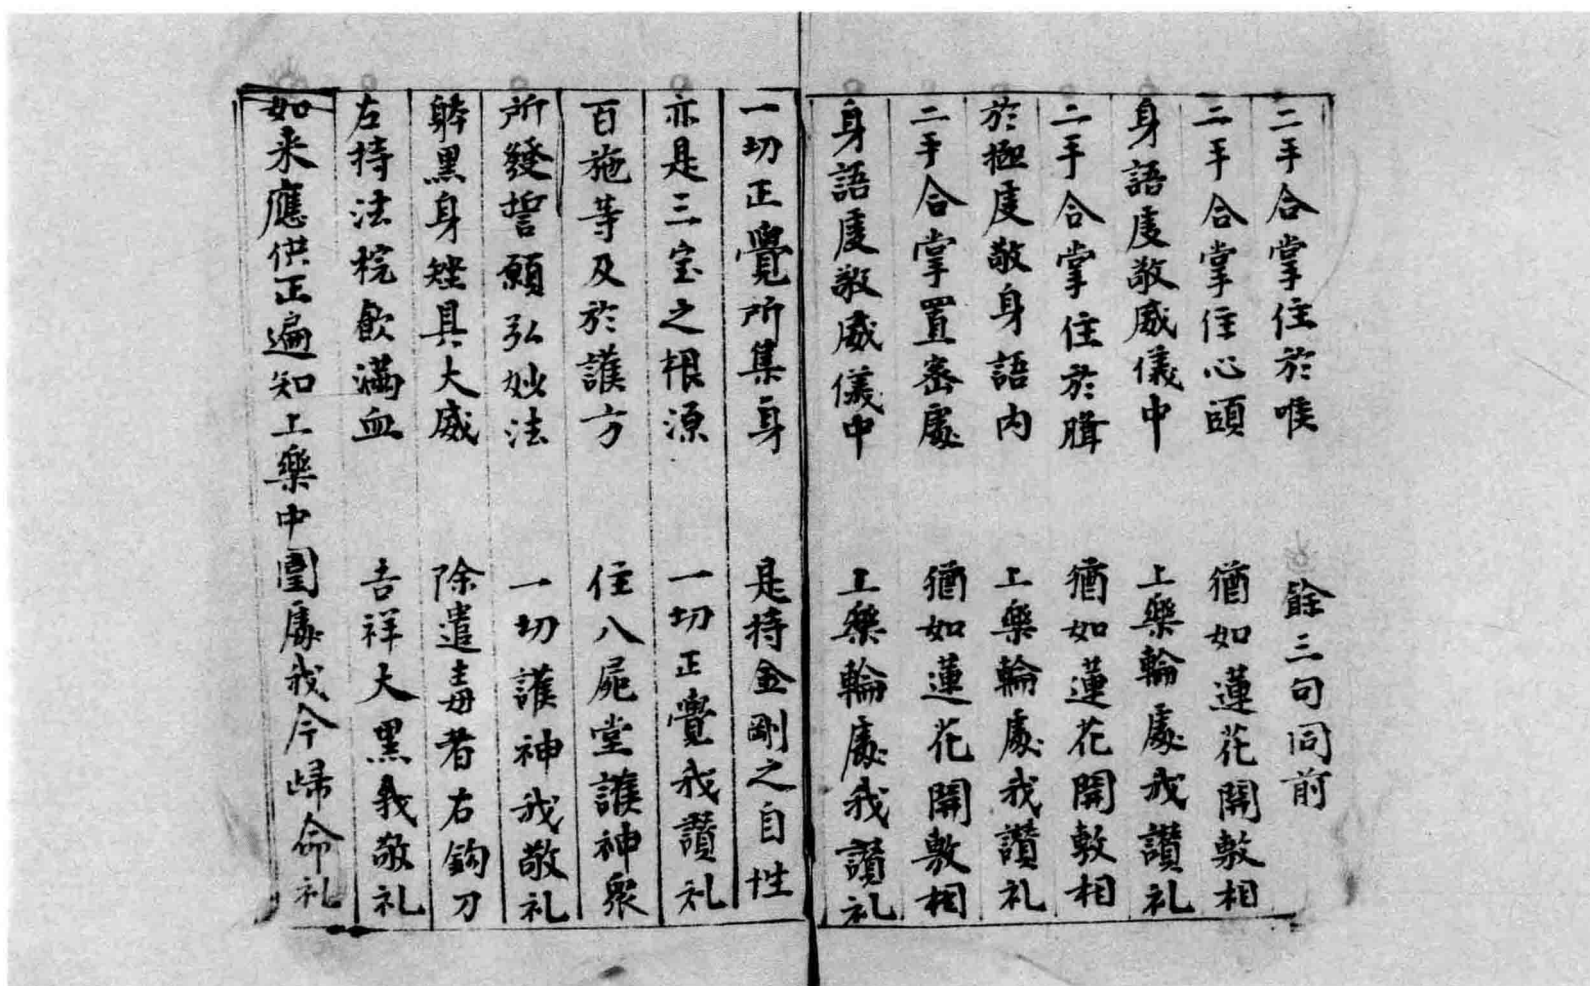 二手合掌住於喉 餘三句同前
二手合掌住心頭 猶如蓮花開敷相
身語虔敬威儀中 上樂輪處我讚礼
二手合掌住於臍 猶如蓮花開敷相
於極虔敬身語内 上樂輪處我讚礼
二手合掌置密處 猶如蓮花開敷相
身語虔敬威儀中 上樂輪處我讚礼
一切正覺所集身 是持金剛之自性
亦是三宝之根源 一切正覺我讚礼
百施等及於護方 住八屍堂護神衆
所發誓願弘妙法 一切護神我敬礼
躰黑身矬具大威 除遣毒者右鉤刀
左持法椀飲滿血 吉祥大黑我敬礼
如来應供正遍知上樂中圍處我今歸命礼